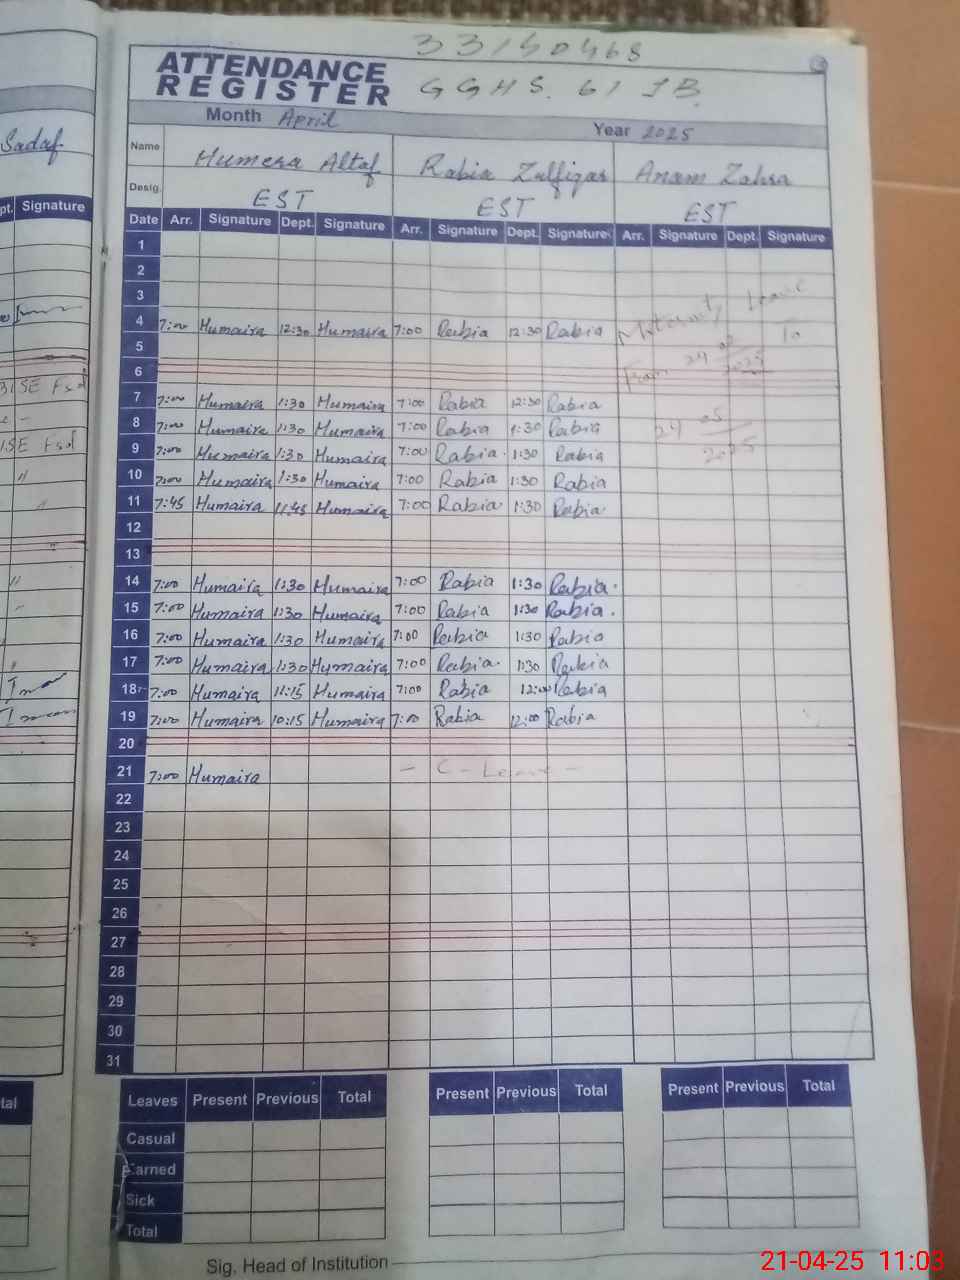 33150468
ATTENDANCE REGISTER
GGHS. 61 JB.
Month April
Year 2025
Name Humera Altaf Rabia Zulfiqar Anam Zahra
Desig. EST EST EST
Date Arr. Signature Dept. Signature Arr. Signature Dept. Signature Arr. Signature Dept. Signature
1
2
3
4 7:00 Humaira 12:30 Humaira 7:00 Rabia 12:30 Rabia
Leave
To
5
From 24
2025
6
7 7:00 Humaira 1:30 Humaira 7:00 Rabia 12:30 Rabia
8 7:00 Humaira 1:30 Humaira 7:00 Rabia 1:30 Rabia
24 05
2025
9 7:00 Humaira 1:30 Humaira 7:00 Rabia 1:30 Rabia
10 7:00 Humaira 1:30 Humaira 7:00 Rabia 1:30 Rabia
11 7:45 Humaira 11:45 Humaira 7:00 Rabia 1:30 Rabia
12
13
14 7:00 Humaira 1:30 Humaira 7:00 Rabia 1:30 Rabia.
15 7:00 Humaira 1:30 Humaira 7:00 Rabia 1:30 Rabia.
16 7:00 Humaira 1:30 Humaira 7:00 Rabia 1:30 Rabia
17 7:00 Humaira 1:30 Humaira 7:00 Rabia. 1:30 Rabia
18 7:00 Humaira 11:15 Humaira 7:00 Rabia 12:00 Rabia
19 7:00 Humaira 10:15 Humaira 7:00 Rabia 12:00 Rabia
20
21 7:00 Humaira - C - Leave -
22
23
24
25
26
27
28
29
30
31
Leaves Present Previous Total Present Previous Total Present Previous Total
Casual
Earned
Sick
Total
Sig. Head of Institution
Sadaf
pt. Signature
BISE Fsd
ISE Fsd
tal
21-04-25 11:03